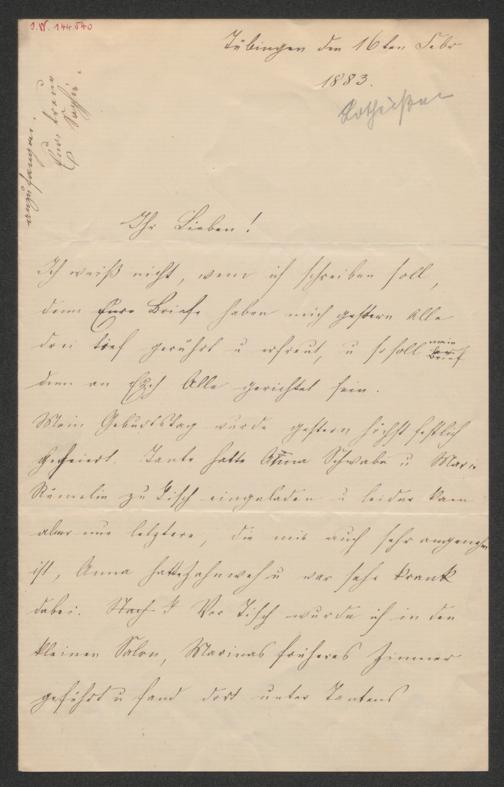 I.N. 144.540
Tübingen den 16ten Febr
1883.
anzufangen.
Eure treue
Sophie.
Ihr Lieben!
Ich weiß nicht, wem ich schreiben soll,
denn Eure Briefe haben mich gestern Alle
drei tief gerührt u erfreut, u so soll mein Brief
denn an Euch Alle gerichtet sein.
Mein Geburtstag wurde gestern höchst festlich
gefeiert Tante hatte Anna Schwabe u Marie
Rümelin zu Tisch eingeladen u leider kam
aber nur letztere, die mir auch sehr angenehm
ist, Anna hatte Zahnweh u war sehr krank
dabei. Vor Tisch wurde ich in den
kleinen Salon, Marinas früheres Zimmer
geführt u fand dort unter Tantens